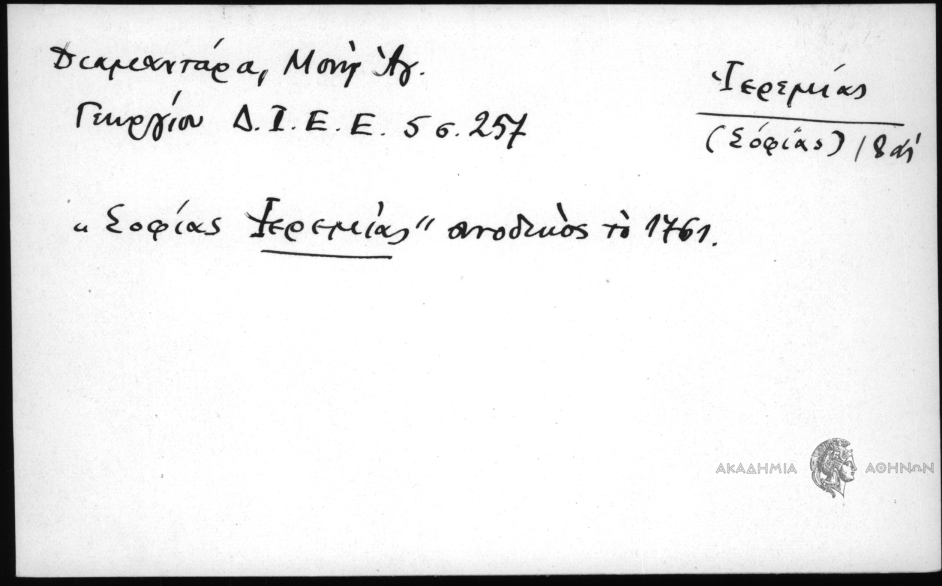 Διαμαντάρα, Μονὴ Ἁγ.
Γεωργίου Δ. Ι. Ε. Ε. 5 σ. 257
Ἱερεμίας
(Σόφίας) 18 αἰ
"Σοφίας Ἱερεμίας" συνοδικὸς τὸ 1761.
ΑΚΑΔΗΜΙΑ ΑΘΗΝΩΝ